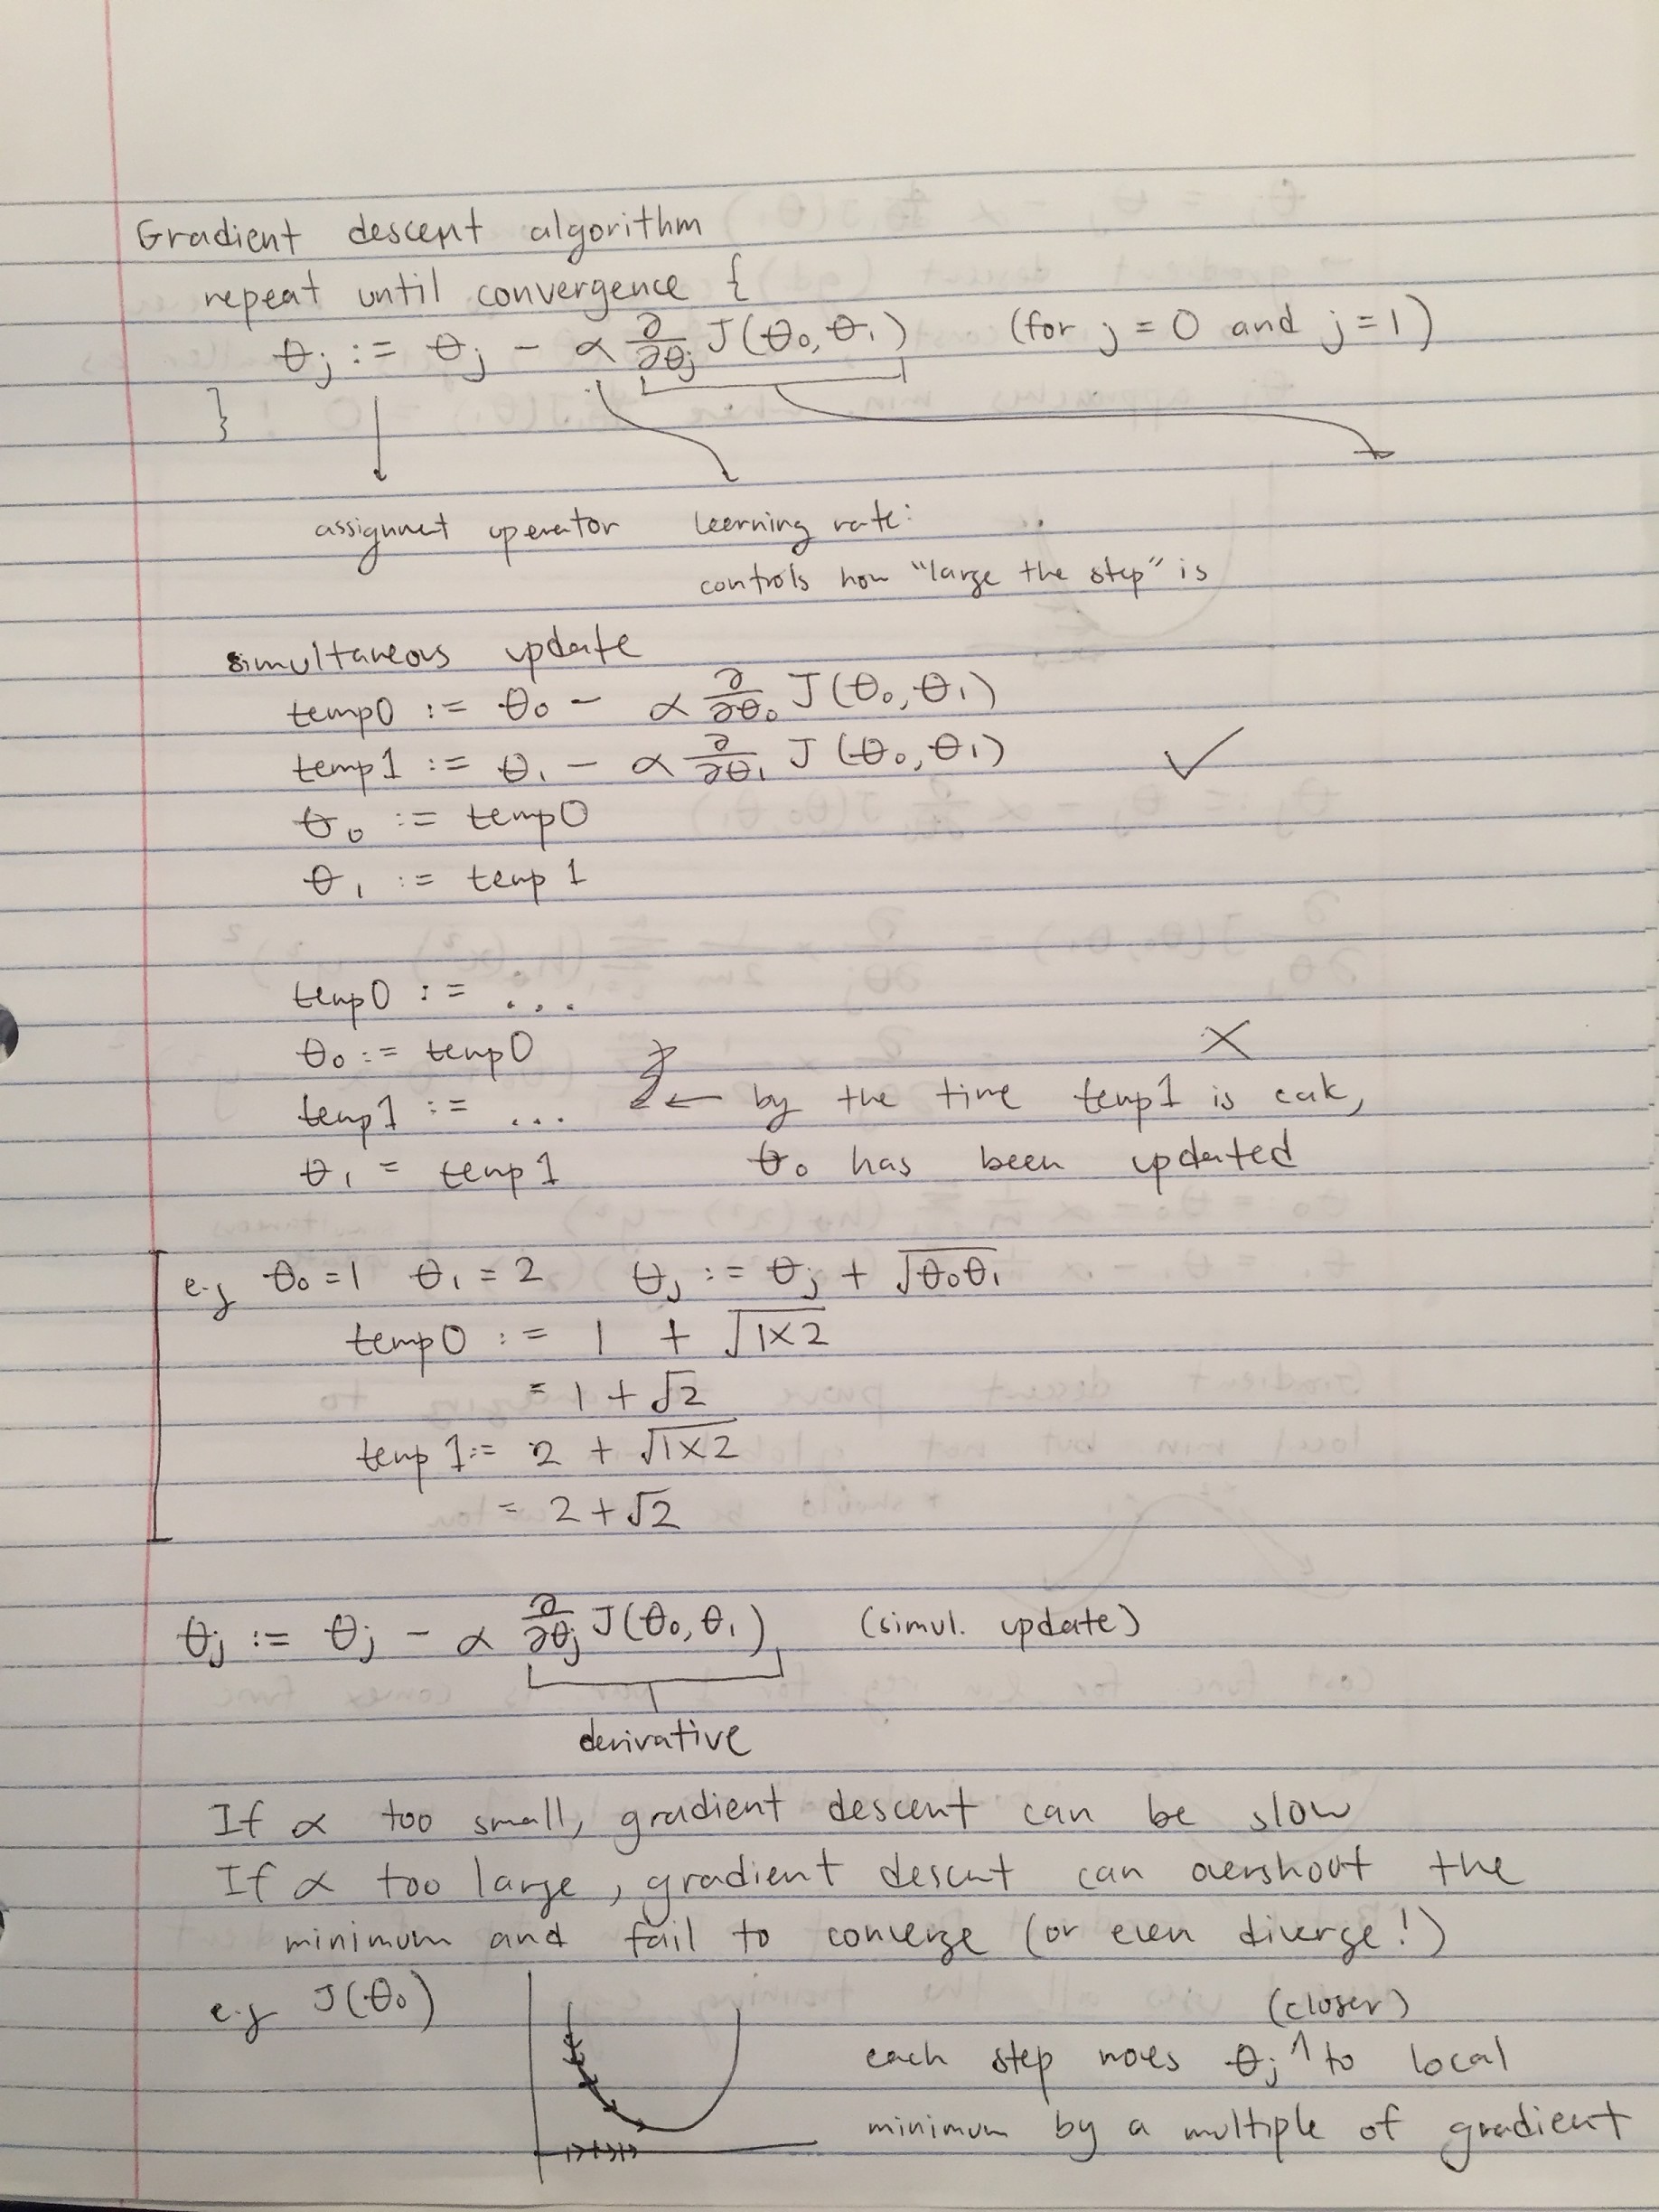 Gradient descent algorithm
repeat until convergence {
θj := θj - α ∂/∂θj J(θ0, θ1) (for j = 0 and j = 1)
}
assignment operator learning rate:
controls how "large the step" is
simultaneous update
temp0 := θ0 - α ∂/∂θ0 J(θ0, θ1)
temp1 := θ1 - α ∂/∂θ1 J(θ0, θ1) ✓
θ0 := temp0
θ1 := temp1
temp0 := ...
θ0 := temp0 ×
temp1 := ... ← by the time temp1 is
θ1 = temp1 θ0 has been updated
e.g θ0 = 1 θ1 = 2 θj := θj + √θ0θ1
temp0 := 1 + √1×2
= 1 + √2
temp1 := 2 + √1×2
= 2 + √2
θj := θj - α ∂/∂θj J(θ0, θ1) (simul. update)
derivative
If α too small, gradient descent can be slow
If α too large, gradient descent can overshout the
minimum and fail to converge (or even diverge!)
e.g J(θ0) (closer)
each step moves θj ^ to local
minimum by a multiple of gradient